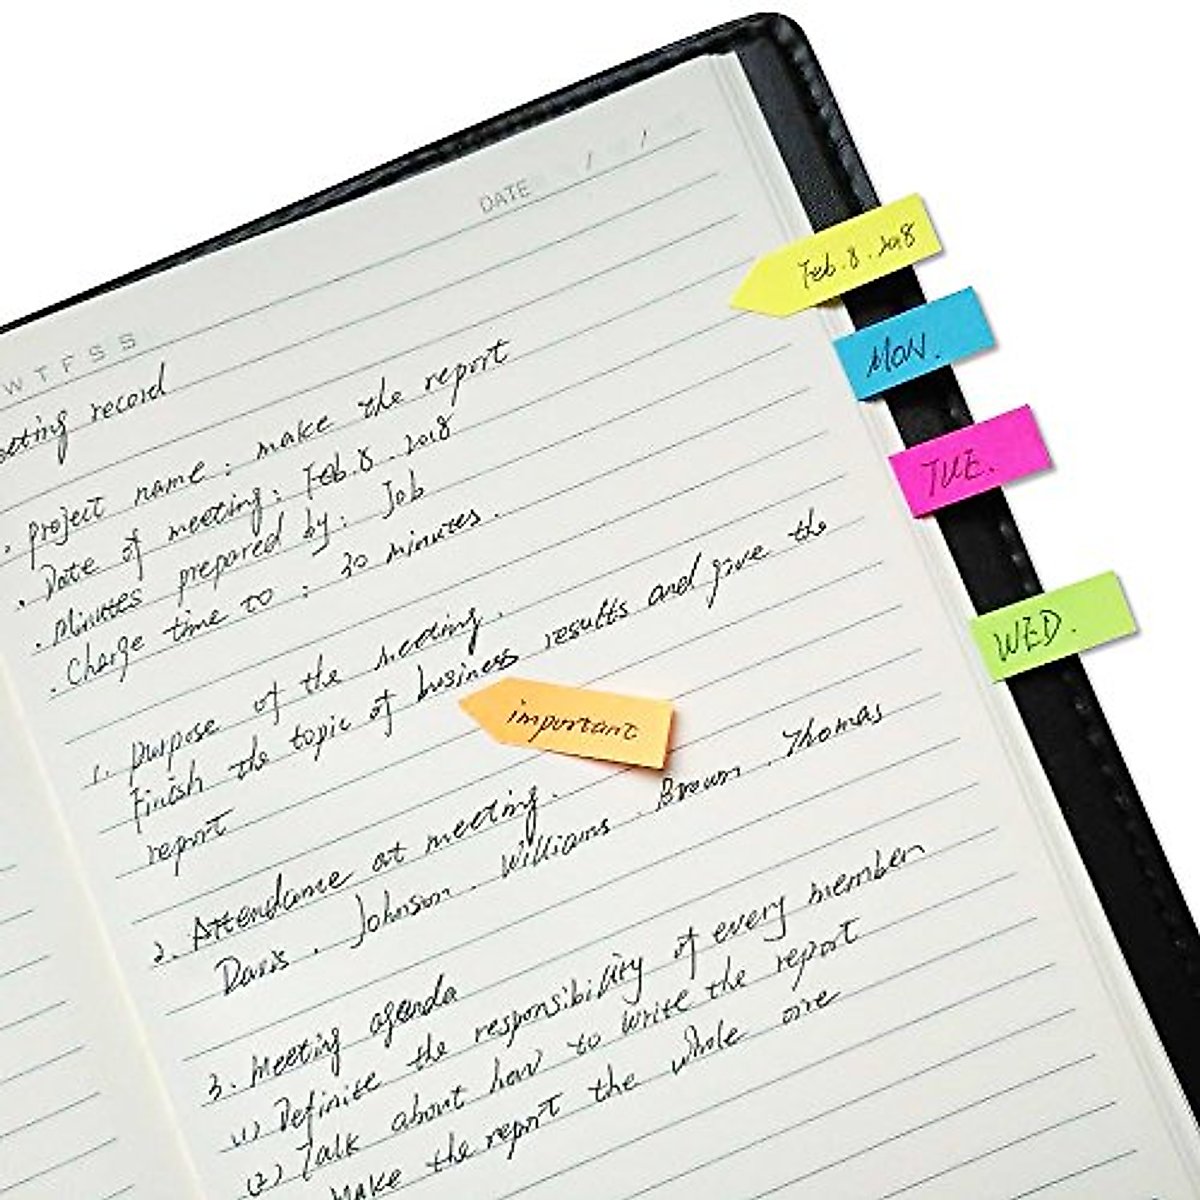 DATE / /
W T F S S
eeting record
. project name : make the report
. Date of meeting : Feb. 8 . 2018
. Minutes prepared by : Job
. Charge time to : 30 minutes .
1. purpose of the meeting .
Finish the topic of business results and give the
report
2. Attendance at meeting .
Davis . Johnson . Williams . Brown . Thomas
3. Meeting agenda
(1) Definite the responsibility of every member
(2) Talk about how to write the report
Make the report the whole
important
Feb. 8 . 2018
MON.
TUE.
WED.